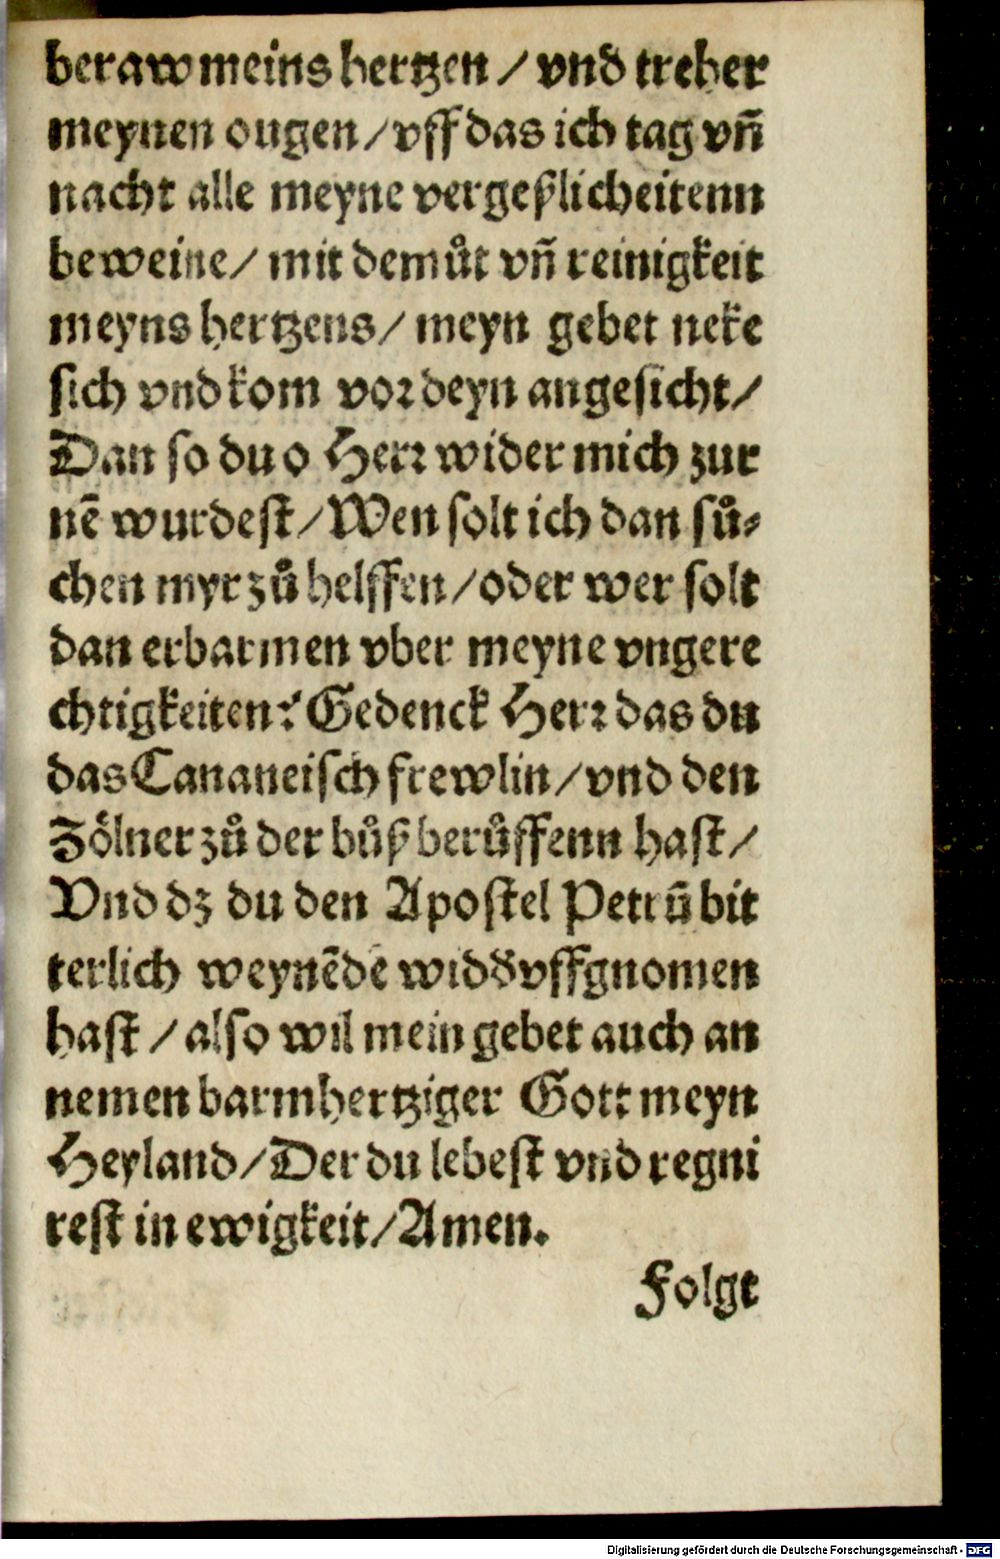 beraw meins hertzen / vnd treher
meynen ougen / vff das ich tag vn̄
nacht alle meyne vergeßlicheitenn
beweine / mit demůt vn̄ reinigkeit
meyns hertzens / meyn gebet neke
sich vnd kom vor deyn angesicht /
Dan so du o Herr wider mich zur
nē wurdest / Wen solt ich dan sů⸗
chen myr zů helffen / oder wer solt
dan erbarmen vber meyne vngere
chtigkeiten? Gedenck Herr das du
das Cananeisch frewlin / vnd den
Zoͤlner zů der bůß berůffenn hast /
Vnd dz du den Apostel Petrū bit
terlich weynēde widď vffgnomen
hast / also wil mein gebet auch an
nemen barmhertziger Gott meyn
Heyland / Der du lebest vnd regni
rest in ewigkeit / Amen.
Folgt
Digitalisierung gefördert durch die Deutsche Forschungsgemeinschaft - DFG